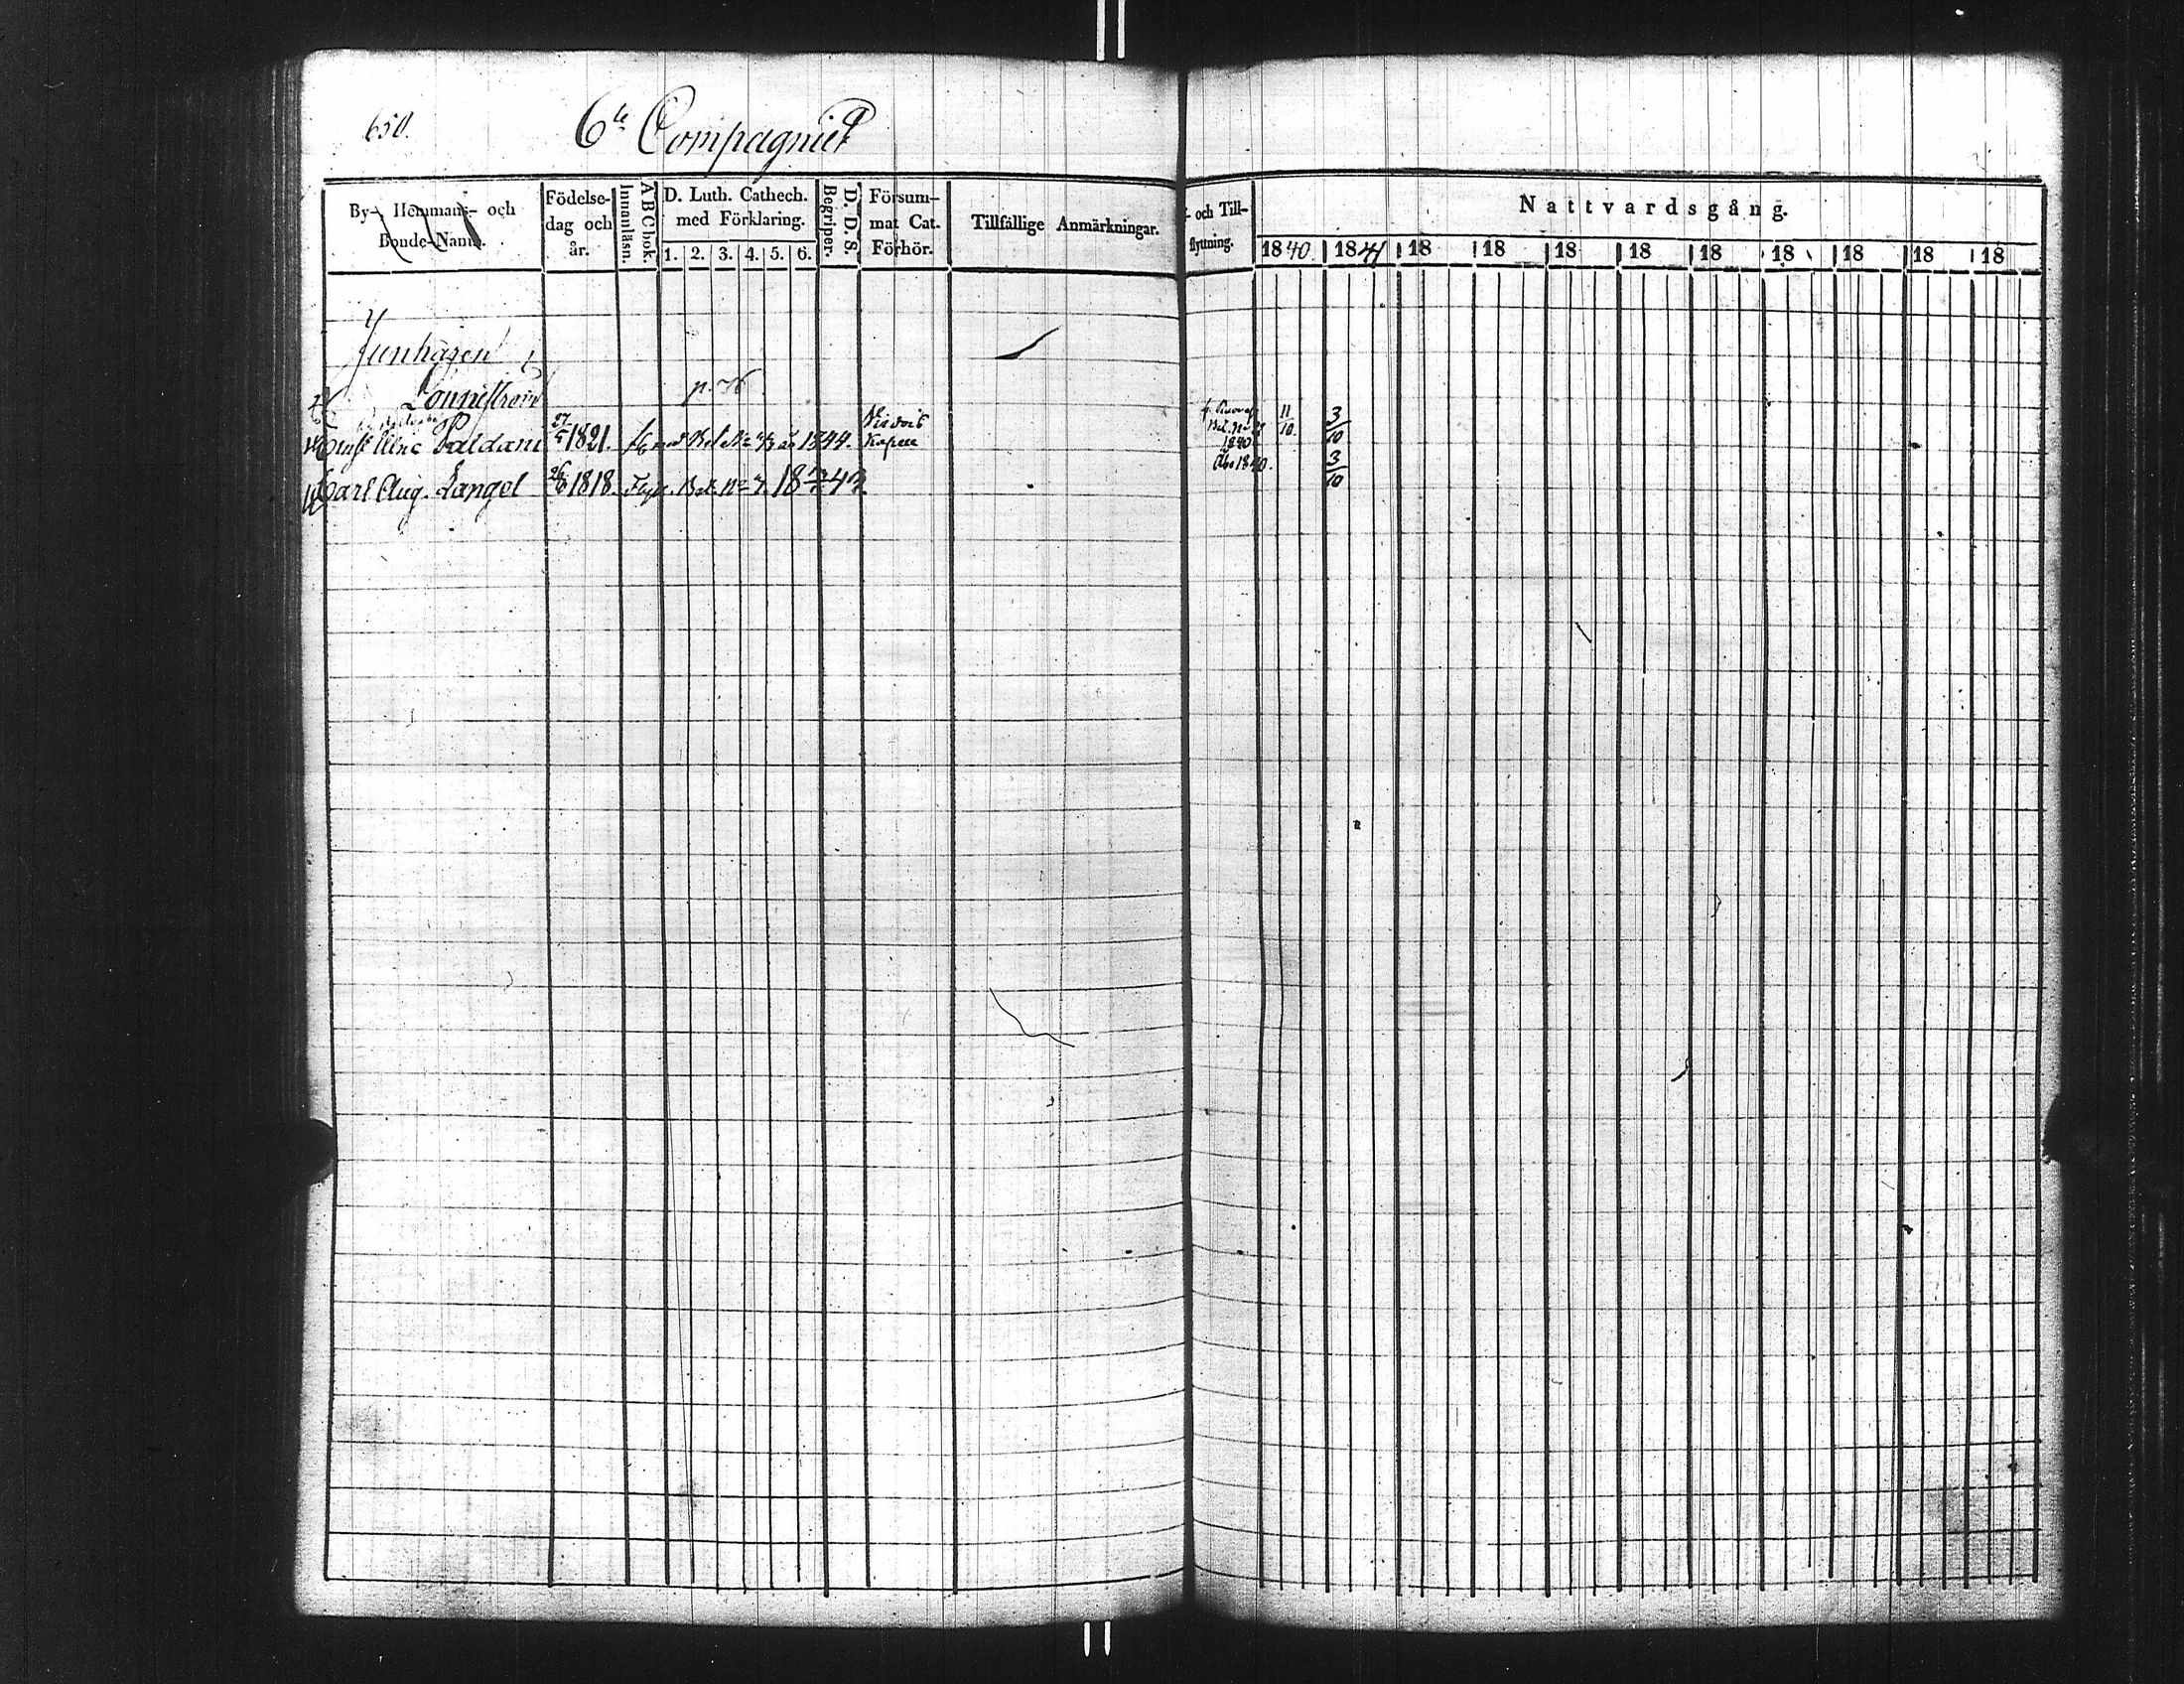 650.
6te Compagniet
By-, Hemmans- och
Bonde-Namn.
Födelse-
dag och
år.
ABCbok.
Innanläsn.
D. Luth. Cathech.
med Förklaring.
1. 2. 3. 4. 5. 6.
D. D. S.
Begriper.
Försum-
mat Cat.
Förhör.
Tillfällige Anmärkningar.
och Till-
flyttning.
Nattvardsgång.
1840. 1841 18 18 18 18 18 18 18 18 18
Junkaren
Lönneström
p.
Paldani 27/5 1821. 1844. 11/10. 3/10
1840
Carl Aug. Langel 26/8 1818. Bat. No 1843. Åbo 1840. 3/10